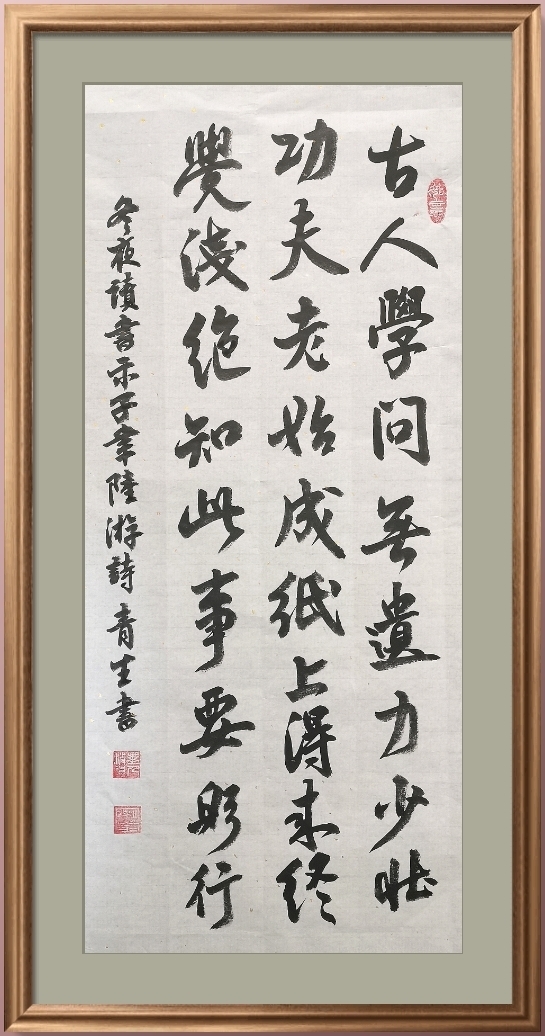 古人學問無遺力少壯
功夫老始成紙上得来終
覺淺絶知此事要躬行
冬夜讀書示子聿陸游詩 青生書